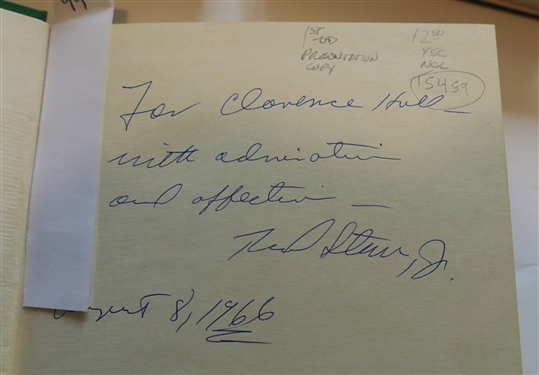 1ST
ED
PRESENTATION
COPY
12 50
YSC
15459
For Clarence
with admiration
and affection —
Jr.
August 8, 1966